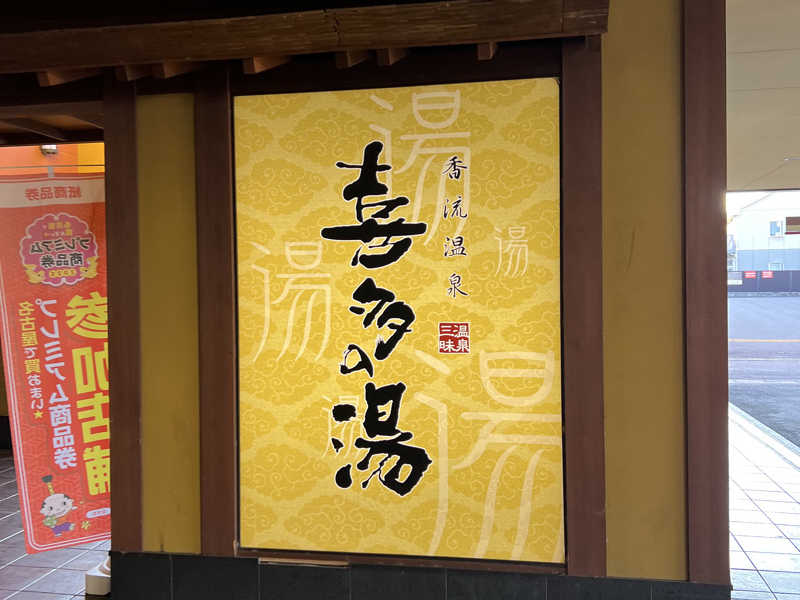 香流温泉
喜多の湯
温泉三昧
湯
湯
湯
湯
湯
紙商品券
プレミアム
商品券
参加店舗
プレミアム商品券
名古屋で買おまい★